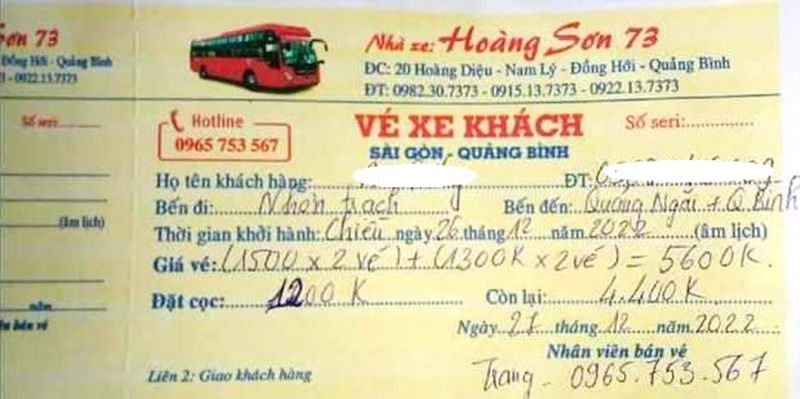 Sơn 73
Đồng Hới - Quảng Bình
- 0922.13.7373
Số seri:
(âm lịch)
năm
bán vé
Nhà xe: Hoàng Sơn 73
ĐC: 20 Hoàng Diệu - Nam Lý - Đồng Hới - Quảng Bình
ĐT: 0982.30.7373 - 0915.13.7373 - 0922.13.7373
Hotline
0965 753 567
VÉ XE KHÁCH
Số seri:
SÀI GÒN - QUẢNG BÌNH
Họ tên khách hàng: ĐT:
Bến đi: Nhơn trạch Bến đến: Quảng Ngãi + Q Bình
Thời gian khởi hành: Chiều ngày 26 tháng 12 năm 2022 (âm lịch)
Giá vé: (1500 x 2 vé) + (1300K x 2 vé) = 5600K.
Đặt cọc: 1200 K Còn lại: 4.400K
Ngày 27 tháng 12 năm 2022
Nhân viên bán vé
Liên 2: Giao khách hàng
Trang - 0965.753.567